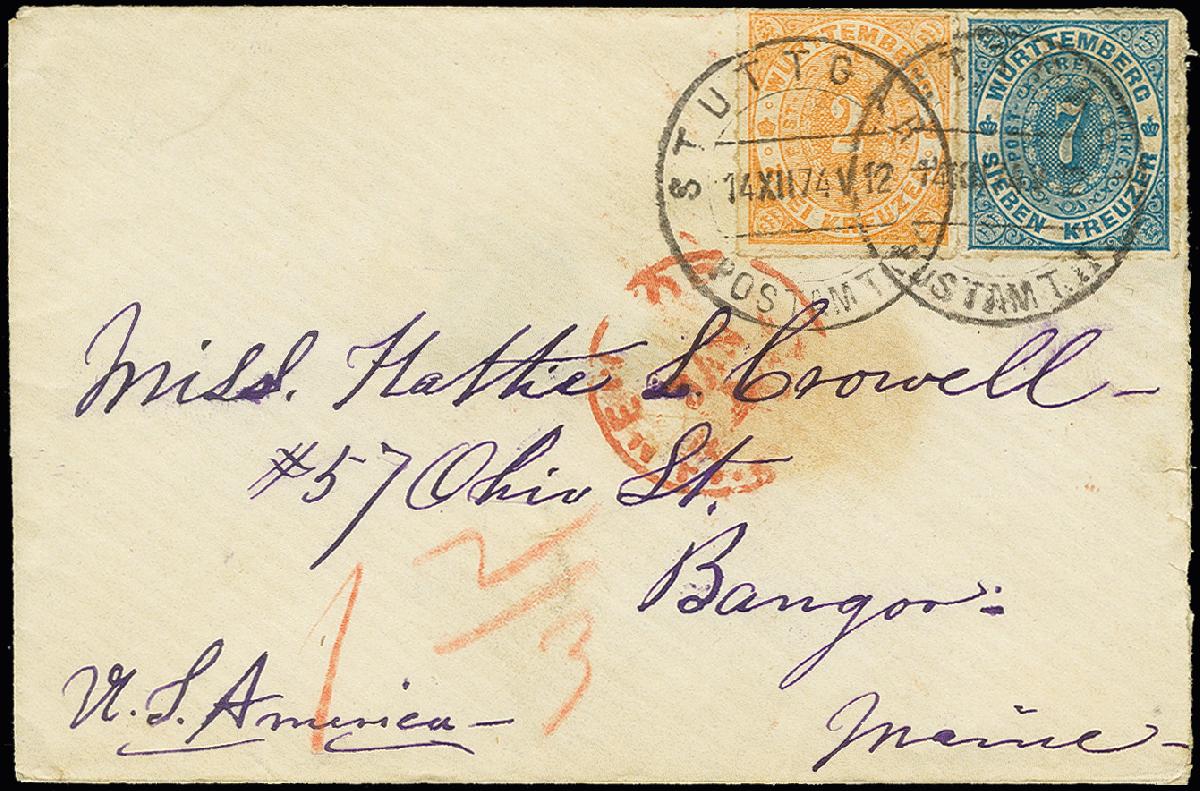 WÜRTTEMBERG
POST-FREI-MARKE
2
ZWEI KREUZER
WÜRTTEMBERG
POST-FREI-MARKE
7
SIEBEN KREUZER
STUTTGART
14 XII 74 V 12
POSTAMT
STUTTGART
POSTAMT
JAN
Miss. Hattie L. Crowell -
#57 Ohio St.
Bangor:
Maine -
U.S. America -
1 2/3